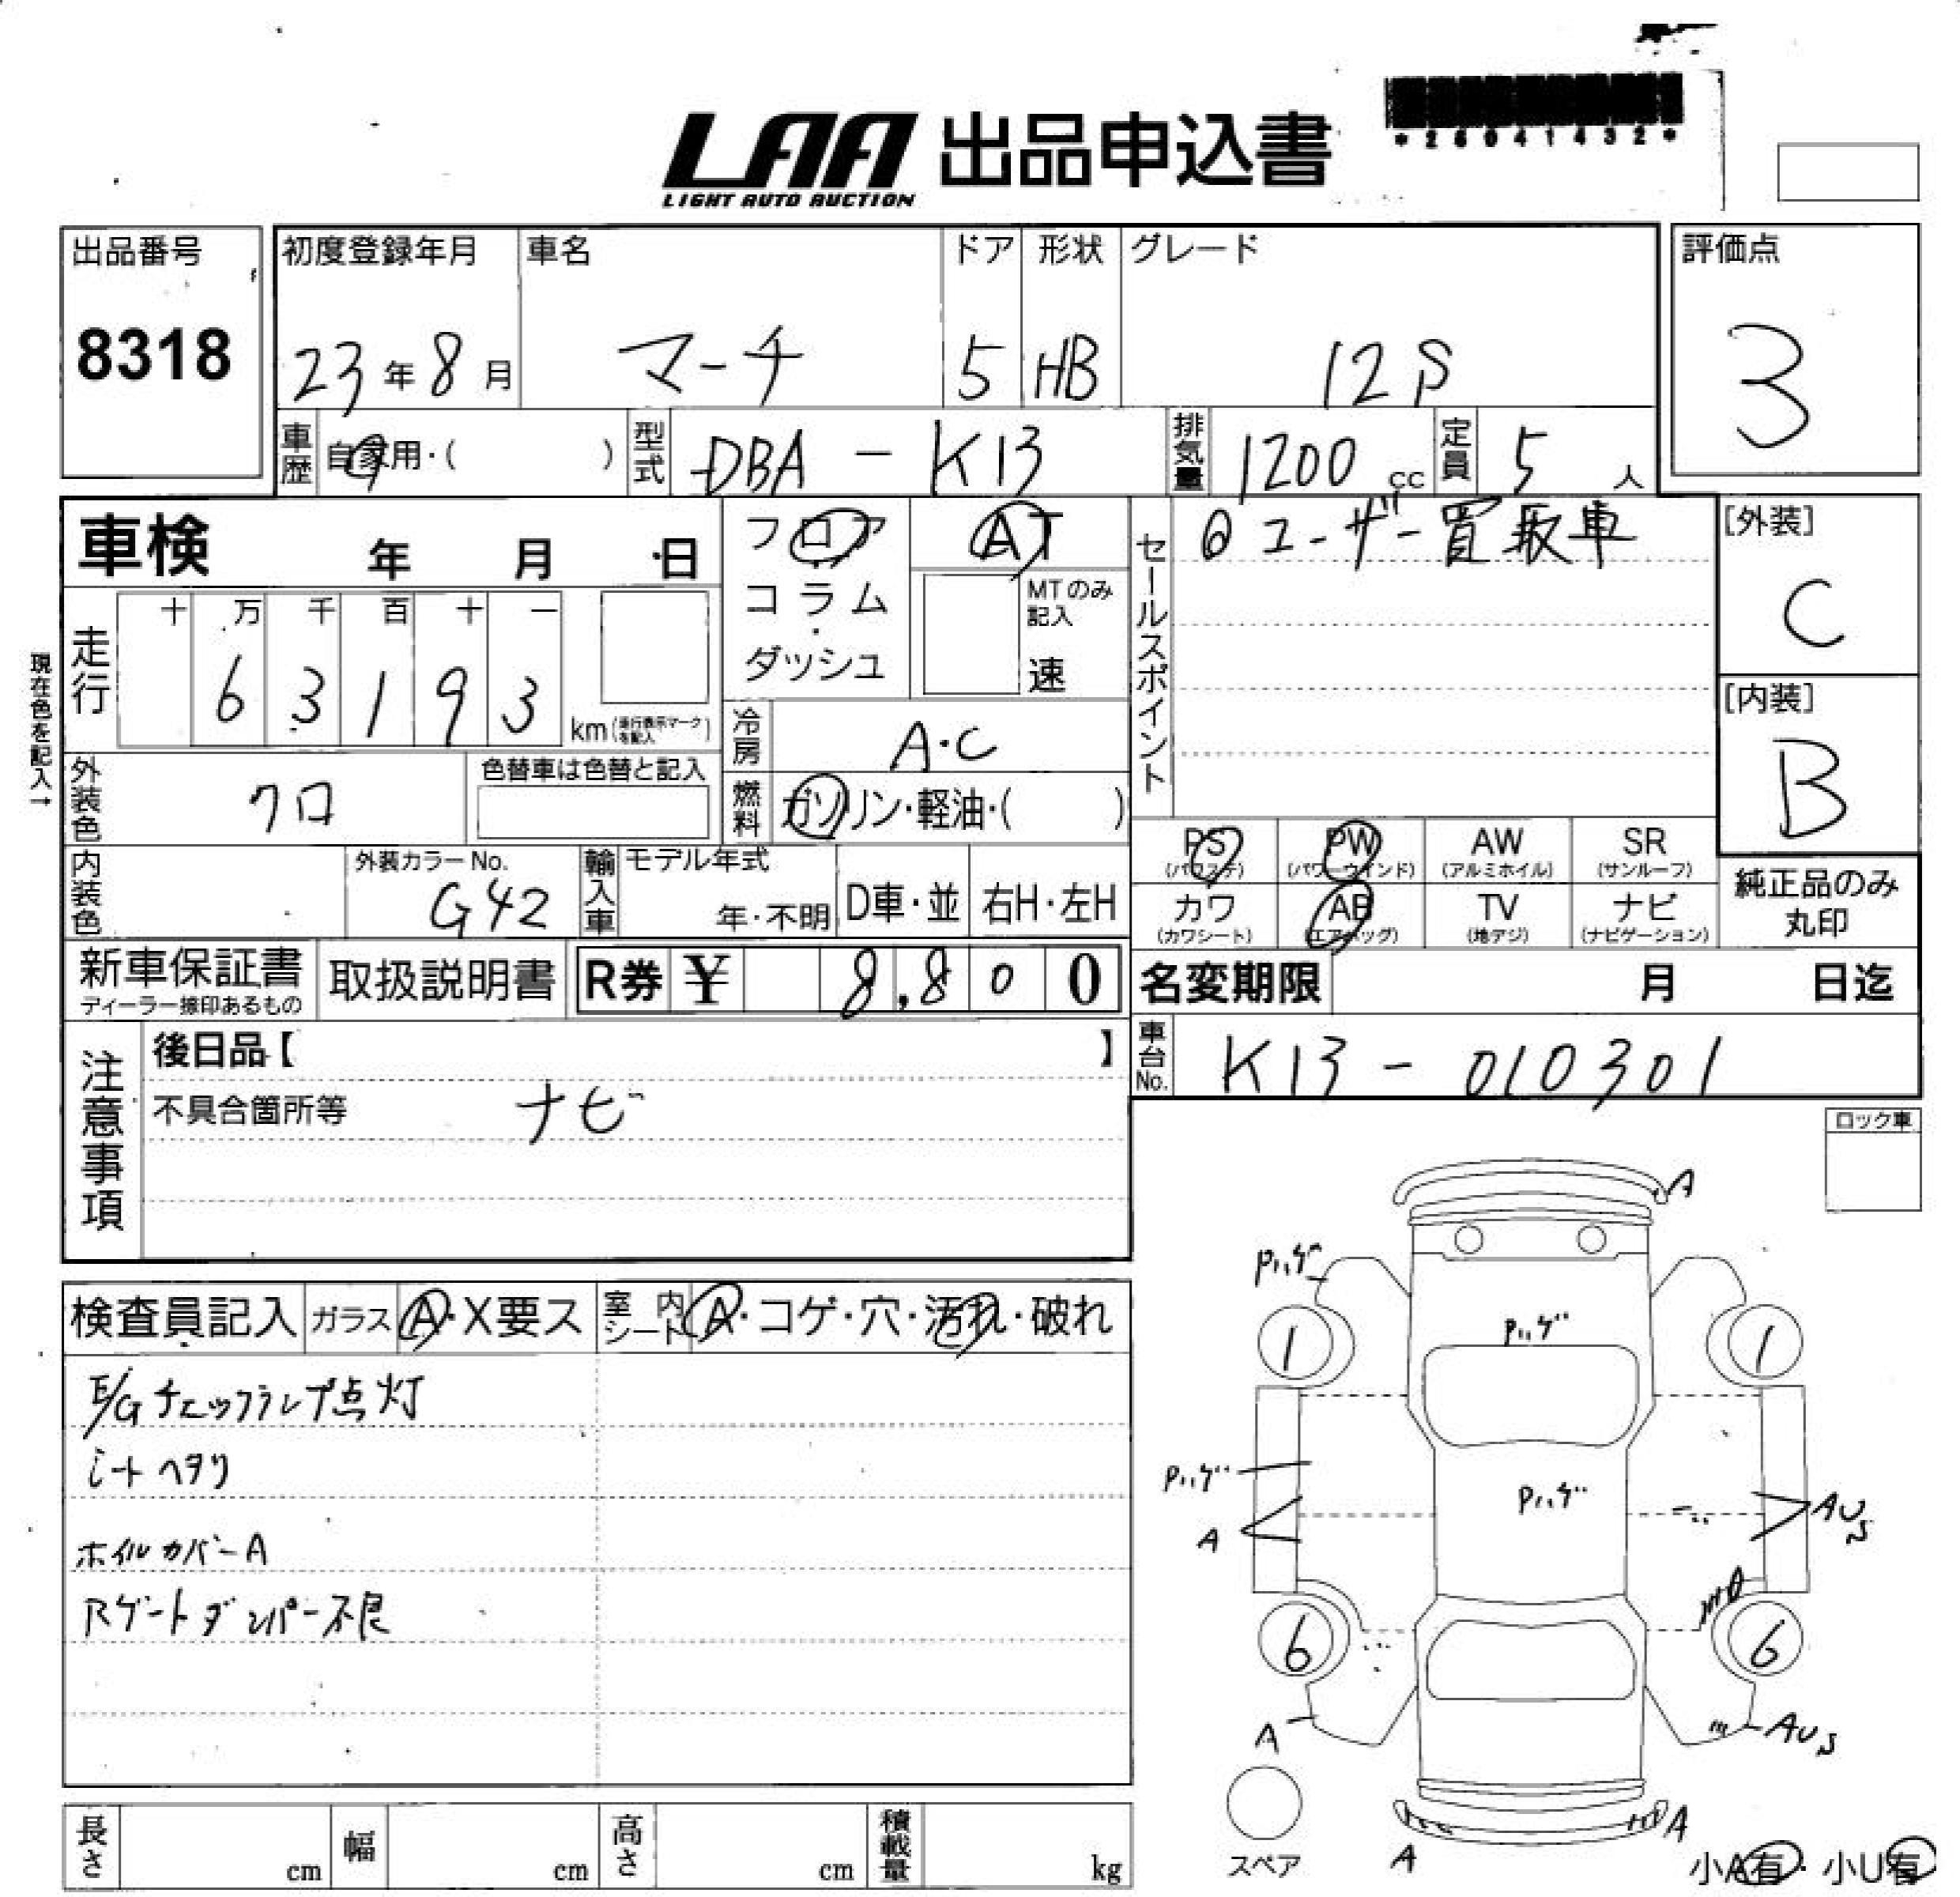 LAA 出品申込書
LIGHT AUTO AUCTION
*26041432*
出品番号
8318
初度登録年月
23年8月
車名
マーチ
ドア
5
形状
HB
グレード
12S
評価点
3
車歴 自家用・( )
型式 DBA - K13
排気量 1200 cc
定員 5 人
車検 年 月 日
フロア
コラム
・
ダッシュ
AT
MTのみ
記入
速
セールスポイント
◎ユーザー買取車
[外装]
C
[内装]
B
現在色を記入→
走行
十 万 千 百 十 一
6 3 1 9 3
km(走行表示マークを記入)
冷房 A・C
燃料 ガソリン・軽油・( )
外装色 クロ
色替車は色替と記入
内装色
外装カラーNo.
G42
輸入車
モデル年式
年・不明
D車・並
右H・左H
PS (パワステ)
PW (パワーウインド)
AW (アルミホイル)
SR (サンルーフ)
カワ (カワシート)
AB (エアバッグ)
TV (地デジ)
ナビ (ナビゲーション)
純正品のみ
丸印
新車保証書
ディーラー捺印あるもの
取扱説明書
R券 ¥ 8,800
名変期限 月 日迄
車台No. K13 - 010301
注意事項
後日品【 】
不具合箇所等 ナビ
ロック車
検査員記入
ガラス A・X要ス
室内シート A・コゲ・穴・汚れ・破れ
E/Gチェックランプ点灯
シートヘタリ
ホイルカバーA
Rゲートダンパー不良
A
Pハゲ
Pハゲ
1
1
Pハゲ
Pハゲ
A
AUS
6
6
A
AUS
スペア
A
A
小A有・小U有
長さ cm
幅 cm
高さ cm
積載量 kg